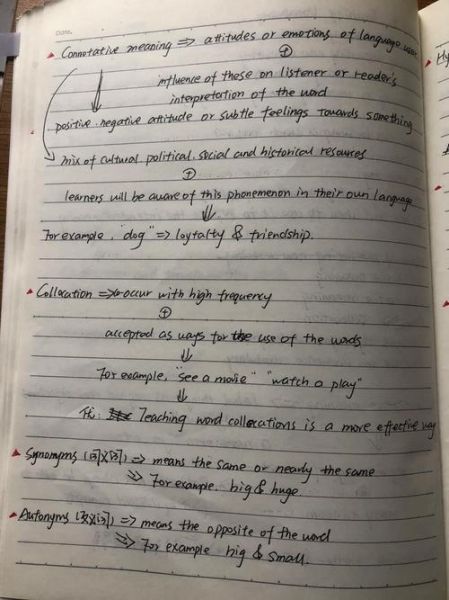 Date.
Connotative meaning => attitudes or emotions of language user
influence of these on listener or reader's
interpretation of the word
positive. negative attitude or subtle feelings towards something
mix of cultural. political. social and historical resources
learners will be aware of this phonemenon in their own language
For example, "dog" => loytalty & friendship.
Collocation => co-occur with high frequency
accepted as ways for the use of the words
For example, "see a movie" "watch a play"
Teaching word collocations is a more effective way
Synonyms (同义词) => means the same or nearly the same
=> For example. big & huge
Autonyms (反义词) => means the opposite of the word
=> For example big & small.
Hy